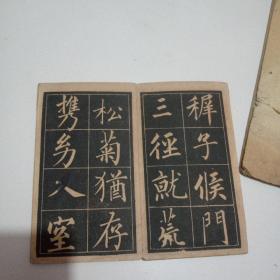 稺子候門
三徑就荒
松菊猶存
携幼入室